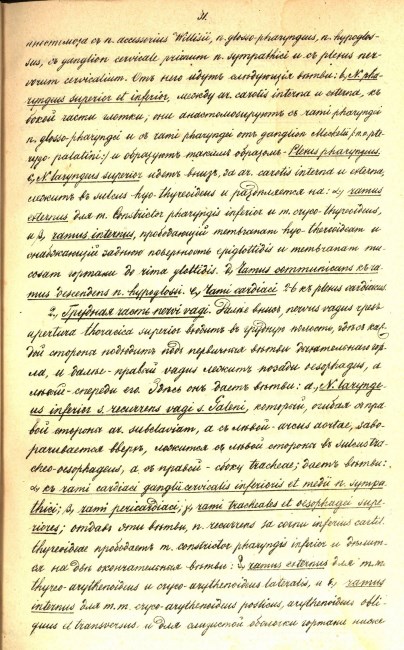 31.
анастомоза съ n. accesserius Willisii, n. glosso-pharyngeus, n. hypoglos-
sus, съ ganglion cervicale primum n. sympathici и съ plexus ner-
vorum cervicalium. Отъ него идутъ слѣдующія вѣтви: N. pha-
ryngeus superior et inferior, между ar. carotis interna и externa, къ
боковой части глотки; они анастомозируютъ съ rami pharyngei
n. glosso-pharyngei и съ rami pharyngei отъ ganglion Meckelii
palatini:) и образуютъ такимъ образомъ Plexus pharyngeus.
N. laryngeus superior идетъ внизъ, за ar. carotis interna и externa,
лежитъ въ sulcus hyo-thyreoideus и раздѣляется на: ramus
externus для m. constrictor pharyngis inferior и m. cryco-thyreoideus,
и ramus internus, прободающій membranam hyo-thyreoideam и
снабжающій заднюю поверхность epiglottidis и membranam mu-
cosam гортани до rima glottidis. ramus communicans къ ra-
mus descendens n. hypoglossi. Rami cardiaci 2 къ plexus cardiacus.
2, Грудная часть nervi vagi. Далѣе внизъ, nervus vagus чрезъ
apertura thoracica superior входитъ въ грудную полость, здѣсь каж-
дой стороны подходитъ подъ первичныя вѣтви дыхательнаго гор-
ла, и далѣе правый vagus лежитъ позади oesophagus, а
лѣвый спереди его. Здѣсь онъ даетъ вѣтви: a, N. larynge-
us inferior s. recurrens vagi s. Galeni, который, огибая съ пра-
вой стороны ar. subclaviam, а съ лѣвой arcus aortae, заво-
рачивается вверхъ, ложится съ лѣвой стороны въ sulcus tra-
cheo-oesophageus, а съ правой сбоку tracheae; даетъ вѣтви:
къ rami cardiaci ganglii cervicalis inferioris et medii n. sympa-
thici; rami pericardiaci; rami tracheales et oesophagei supe-
riores; отдавъ эти вѣтви, n. recurrens за cornu inferius cartil.
thyreoideae прободаетъ m. constrictor pharyngis inferior и дѣлит-
ся на двѣ окончательныя вѣтви: ramus externus для m.m.
thyreo-arythenoideus и cryco-arythenoideus lateralis, и ramus
internus для m.m. cryco-arythenoideus posticus, arythenoideus obli-
quus et transversus и для слизистой оболочки гортани ниже